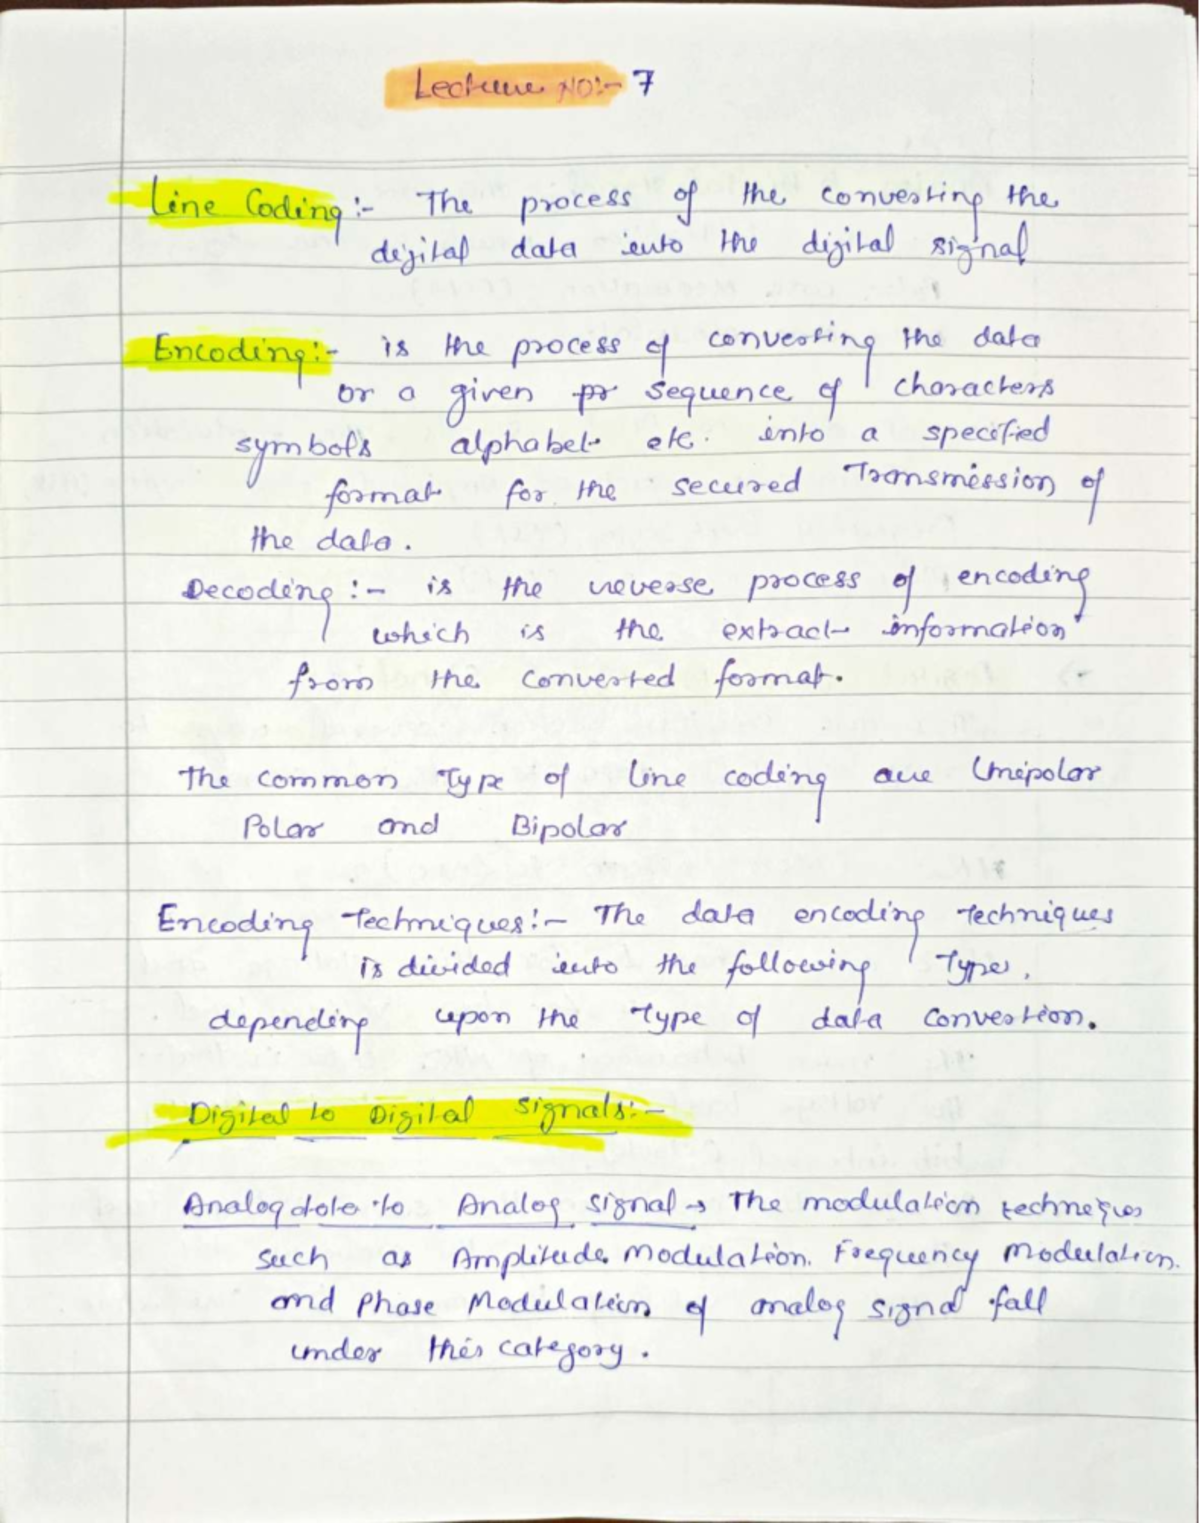 Lecture NO:- 7
Line Coding :- The process of the converting the
digital data into the digital signal
Encoding:- is the process of converting the data
or a given pr sequence of characters
symbols alphabet etc. into a specified
format for the secured Transmission of
the data.
Decoding :- is the reverse process of encoding
which is the extract information
from the converted format.
The common Type of line coding are Unipolar
Polar and Bipolar
Encoding Techniques:- The data encoding Techniques
is divided into the following Type,
depending upon the type of data convertion.
Digital to Digital signals:-
Analog data to Analog signal → The modulation techniques
such as Amplitude Modulation. Frequency Modulation.
and Phase Modulation of analog signal fall
under this category.